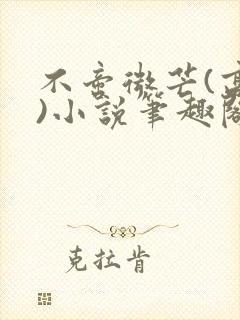 不啻微芒(高
)小說筆趣閣
克拉肯